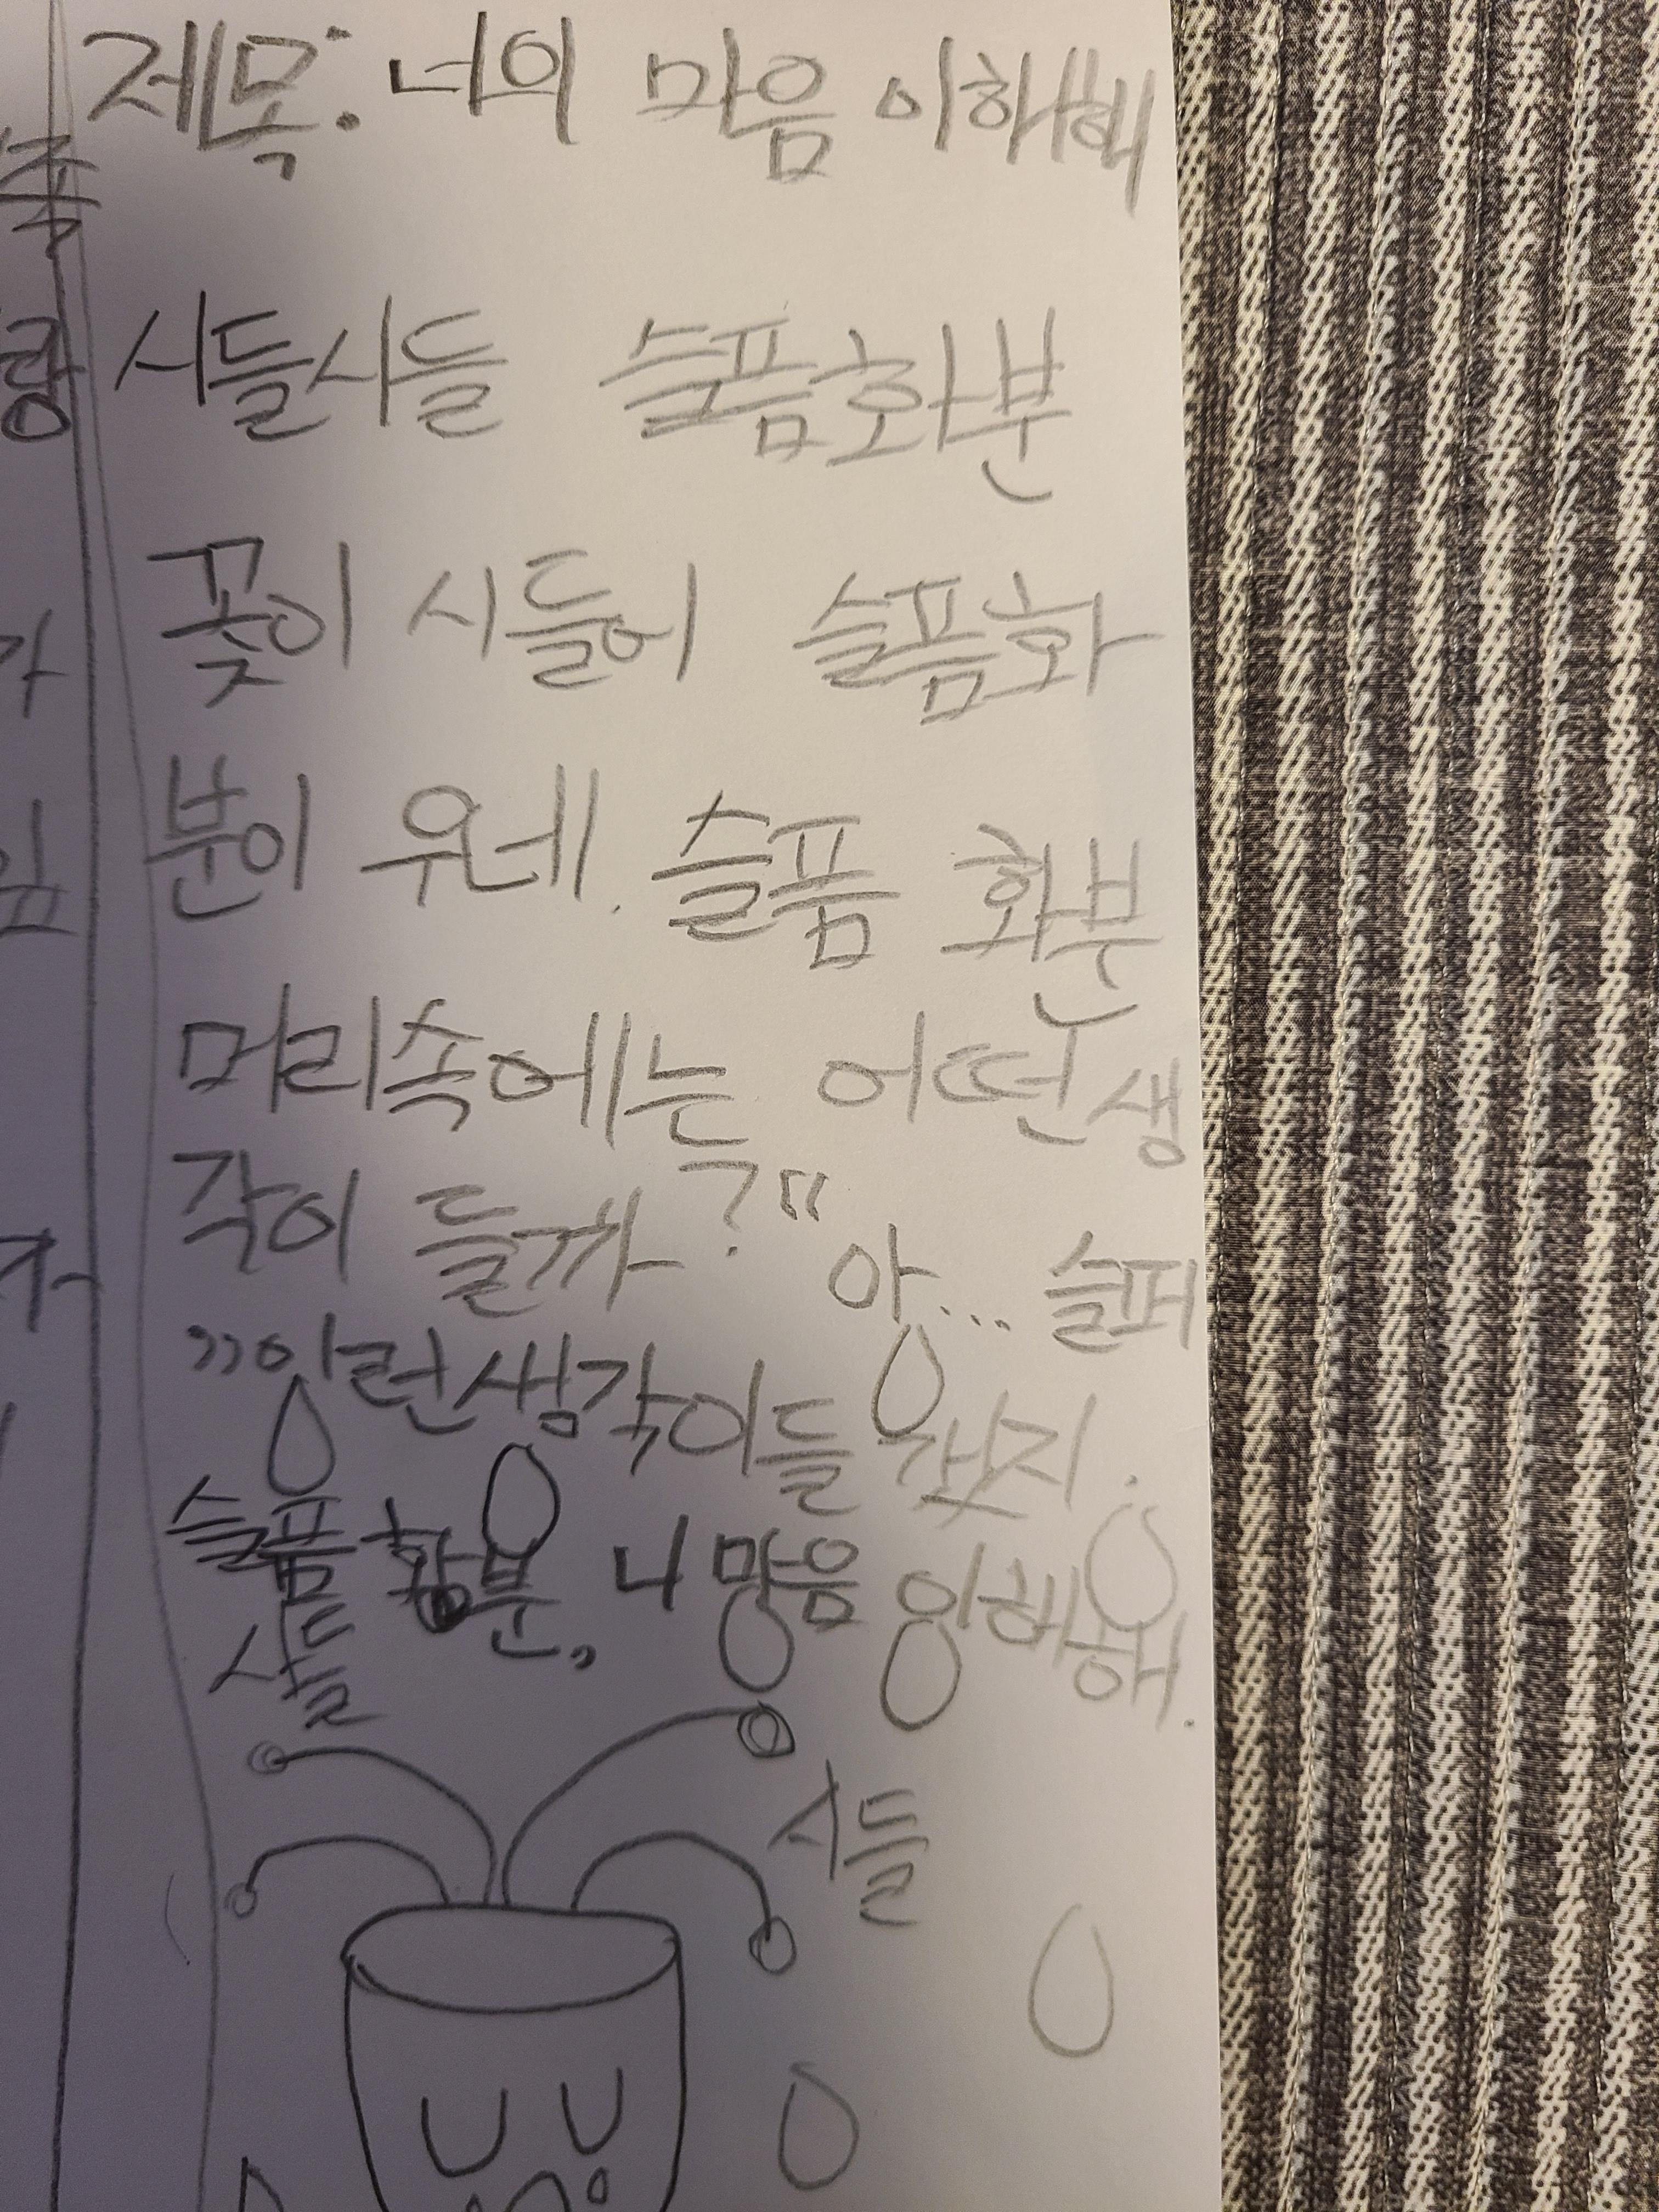 제목: 너의 마음 이해해
시들시들 슬픔화분
꽃이 시들어 슬픔화
분이 우네. 슬픔 화분
머리속에는 어떤 생
각이 들까?" 아... 슬퍼
"이런생각이들 겠지.
슬픔 화분, 니 마음 이해해.
시들
시들